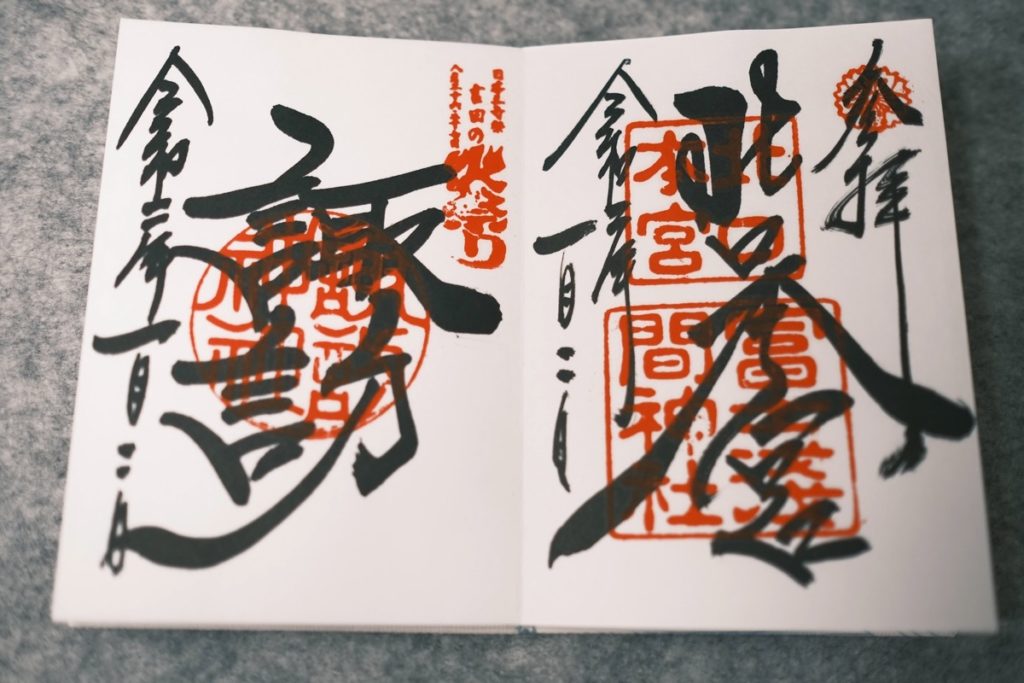 参拝
北口本宮
北口
本宮
冨士淺
間神社
令和二年
一月二日
日本三奇祭
吉田の
火祭り
諏訪
諏訪
神社
令和二年一月二日